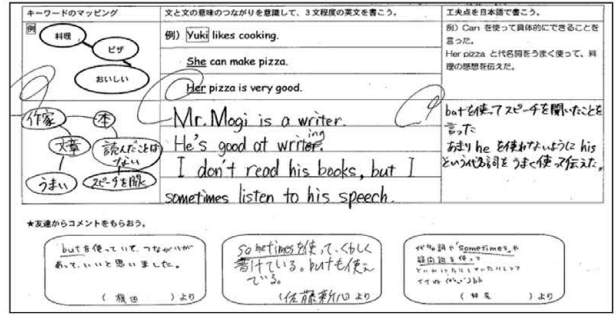 キーワードのマッピング
文と文の意味のつながりを意識して、3文程度の英文を書こう。
工夫点を日本語で書こう。
例
料理
ピザ
おいしい
例) Yuki likes cooking.
She can make pizza.
Her pizza is very good.
例) Can を使って具体的にできることを
言った。
Her pizza と代名詞をうまく使って、料
理の感想を伝えた。
作家
本
文章
読んだことは
ない
うまい
スピーチを聞く
Mr. Mogi is a writer.
He's good at writing.
I don't read his books, but I
sometimes listen to his speech.
butを使ってスピーチを聞いたことを
言った
あまり he を使わないように his
という代名詞をうまく使って伝えた。
★友達からコメントをもらおう。
butを使っていて、つながりが
あって、いいと思いました。
( ) より
sometimesを使って、くわしく
書けている。butも使え
ている。
(佐藤 ) より
代名詞や「sometimes」や
接続詞を使って
( ) より